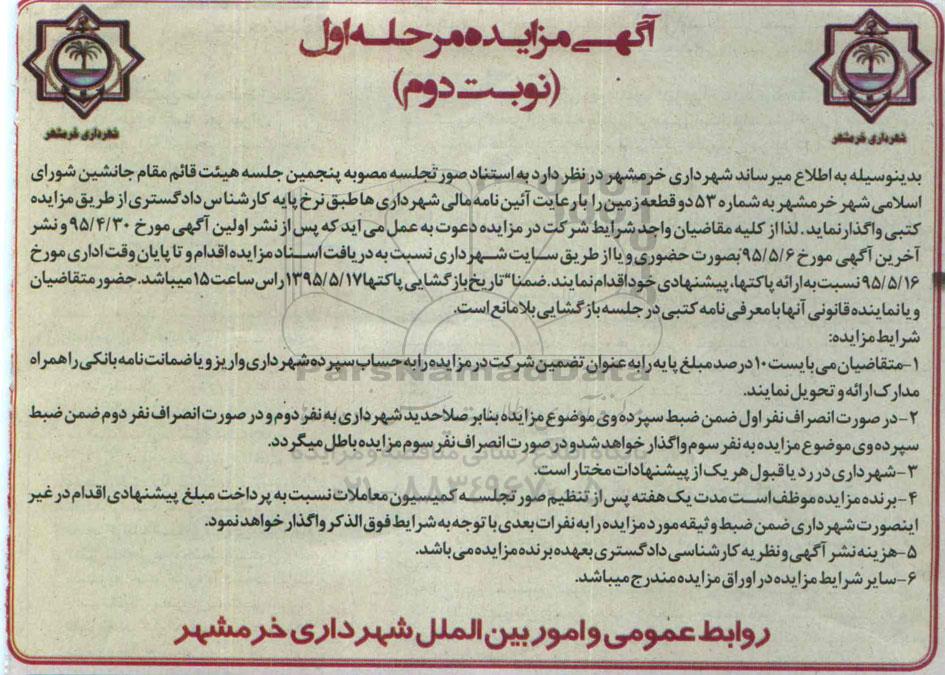 آگهی مزایده مرحله اول
(نوبت دوم)
شهرداری خرمشهر
شهرداری خرمشهر
بدینوسیله به اطلاع میرساند شهرداری خرمشهر در نظر دارد به استناد صورتجلسه مصوبه پنجمین جلسه هیئت قائم مقام جانشین شورای
اسلامی شهر خرمشهر به شماره ۵۳ دو قطعه زمین را با رعایت آئین نامه مالی شهرداری ها طبق نرخ پایه کارشناس دادگستری از طریق مزایده
کتبی واگذار نماید. لذا از کلیه متقاضیان واجد شرایط شرکت در مزایده دعوت به عمل می آید که پس از نشر اولین آگهی مورخ ۹۵/۴/۳۰ و نشر
آخرین آگهی مورخ ۹۵/۵/۶ بصورت حضوری و یا از طریق سایت شهرداری نسبت به دریافت اسناد مزایده اقدام و تا پایان وقت اداری مورخ
۹۵/۵/۱۶ نسبت به ارائه پاکتها، پیشنهادی خود اقدام نمایند. ضمنا" تاریخ بازگشایی پاکتها ۱۳۹۵/۵/۱۷ راس ساعت ۱۵ میباشد. حضور متقاضیان
و یا نماینده قانونی آنها با معرفی نامه کتبی در جلسه بازگشایی بلامانع است.
شرایط مزایده:
۱-متقاضیان می بایست ۱۰ درصد مبلغ پایه را به عنوان تضمین شرکت در مزایده را به حساب سپرده شهرداری واریز و یا ضمانت نامه بانکی را همراه
مدارک ارائه و تحویل نمایند.
۲-در صورت انصراف نفر اول ضمن ضبط سپرده وی موضوع مزایده بنابر صلاحدید شهرداری به نفر دوم و در صورت انصراف نفر دوم ضمن ضبط
سپرده وی موضوع مزایده به نفر سوم واگذار خواهد شد و در صورت انصراف نفر سوم مزایده باطل میگردد.
۳-شهرداری در رد یا قبول هر یک از پیشنهادات مختار است.
۴-برنده مزایده موظف است مدت یک هفته پس از تنظیم صورتجلسه کمیسیون معاملات نسبت به پرداخت مبلغ پیشنهادی اقدام در غیر
اینصورت شهرداری ضمن ضبط وثیقه مورد مزایده را به نفرات بعدی با توجه به شرایط فوق الذکر واگذار خواهد نمود.
۵-هزینه نشر آگهی و نظریه کارشناسی دادگستری بعهده برنده مزایده می باشد.
۶-سایر شرایط مزایده در اوراق مزایده مندرج میباشد.
روابط عمومی و امور بین الملل شهرداری خرمشهر
ParsNamadData
پایگاه اطلاع رسانی مناقصه و مزایده